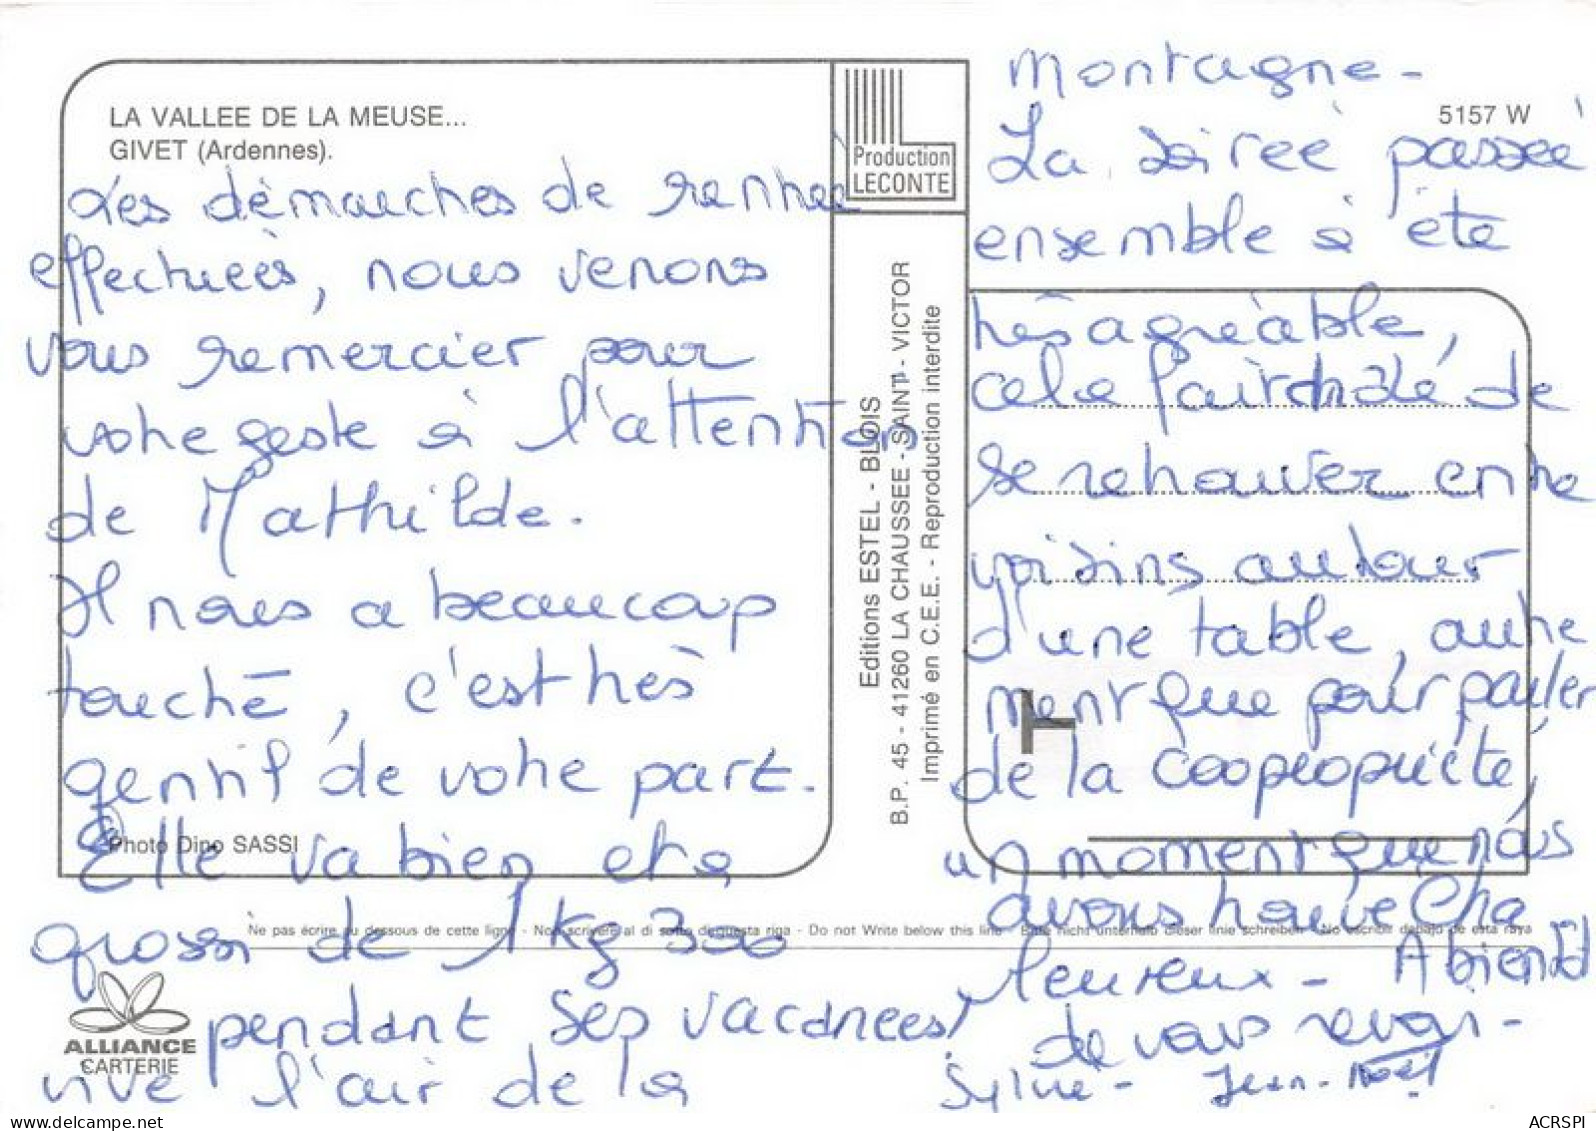 LA VALLEE DE LA MEUSE...
GIVET (Ardennes).
Les démarches de rentrée
effectuées, nous venons
vous remercier pour
votre geste à l'attention
de Mathilde.
Il nous a beaucoup
touché, c'est très
gentil de votre part.
Photo Dino SASSI
Elle va bien et a
grossi de 1 kg 300
pendant ses vacances!
vive l'air de la
ALLIANCE
CARTERIE
Production
LECONTE
Editions ESTEL - BLOIS
B.P. 45 - 41260 LA CHAUSSEE - SAINT - VICTOR
Imprimé en C.E.E. - Reproduction interdite
5157 W
Montagne -
La soirée passée
ensemble à été
très agréable,
cela fait de
se retrouver entre
voisins autour
d'une table, autre
ment que pour parler
de la coopropriété,
un moment que nous
avons trouvé Cha
leureux - A bientôt
de vous revoir -
Sylvie - Jean-Noël
Ne pas écrire au dessous de cette ligne - Non scrivere al di sotto di questa riga - Do not Write below this line - Bitte nicht unterhalb dieser linie schreiben - No escribir debajo de esta raya
www.delcampe.net
ACRSPI